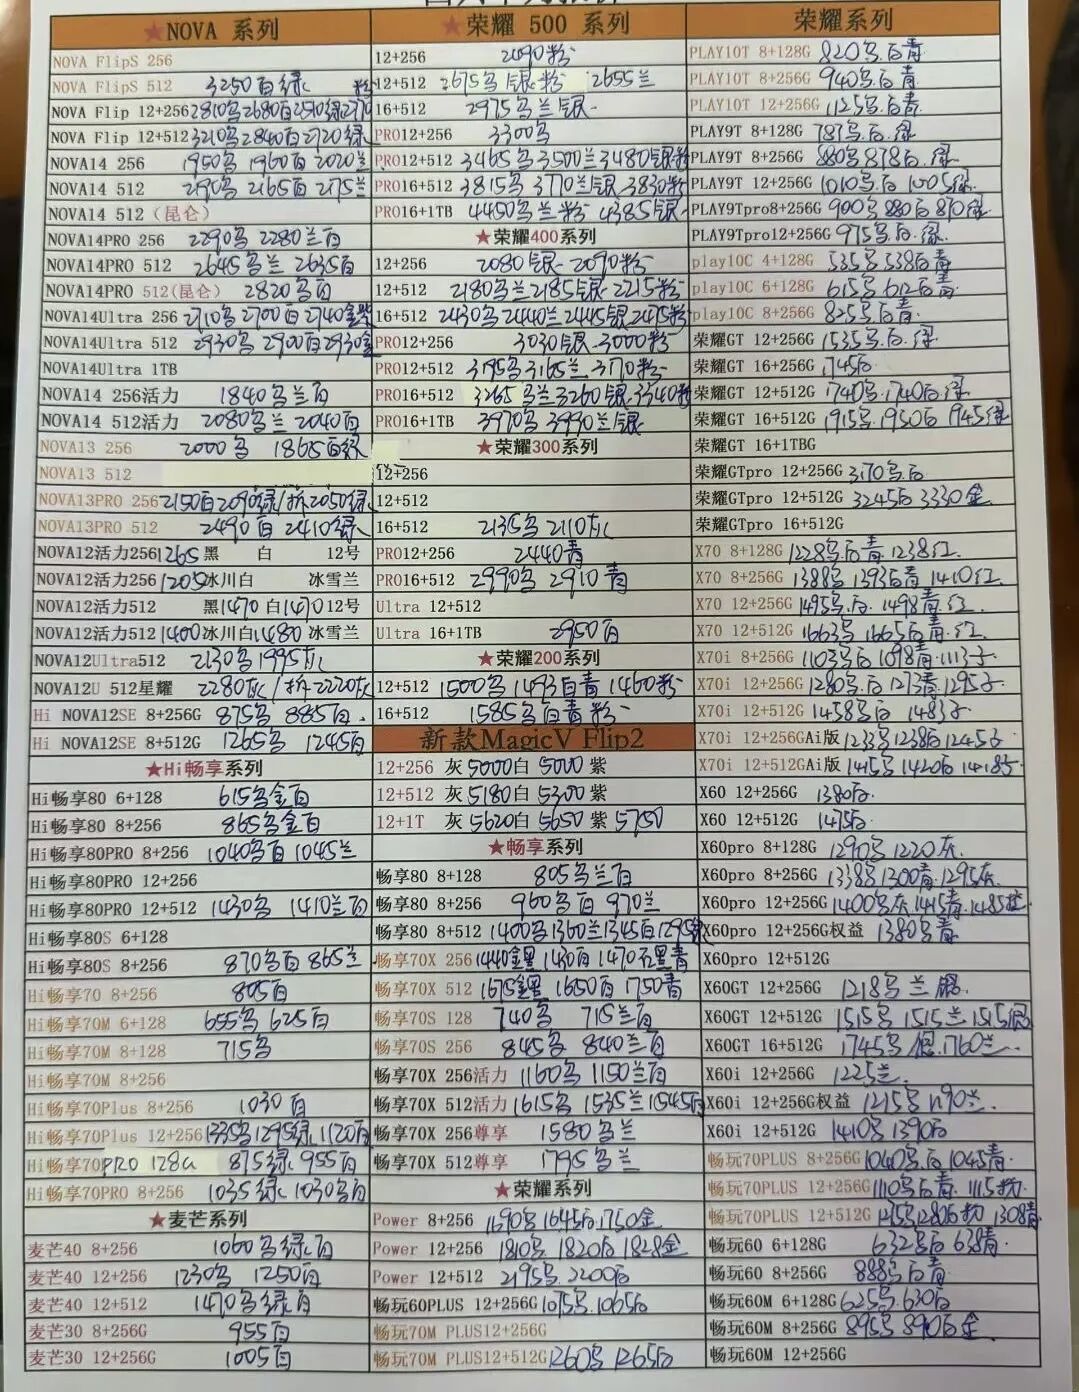 ★NOVA 系列
NOVA FlipS 256
NOVA FlipS 512 3250白绿 粉
NOVA Flip 12+256 2810乌2680白2590绿2770
NOVA Flip 12+512 3210乌2840白2720绿
NOVA14 256 1950乌 1960白 2020兰
NOVA14 512 2190乌 2165白 2175兰
NOVA14 512（昆仑）
NOVA14PRO 256 2290乌 2280兰白
NOVA14PRO 512 2645乌兰 2635白
NOVA14PRO 512(昆仑) 2820乌白
NOVA14Ultra 256 2710乌 2700白 2740金
NOVA14Ultra 512 2930乌 2900白2930金
NOVA14Ultra 1TB
NOVA14 256活力 1840乌兰白
NOVA14 512活力 2080乌兰 2040白
NOVA13 256 2000乌 1865白绿
NOVA13 512
NOVA13PRO 256 2150白2090绿/拆2050绿
NOVA13PRO 512 2490白 2410绿
NOVA12活力256 1265黑 白 12号
NOVA12活力256 1205冰川白 冰雪兰
NOVA12活力512 黑1470 白1470 12号
NOVA12活力512 1400冰川白1480 冰雪兰
NOVA12Ultra512 2130乌1995灰
NOVA12U 512星耀 2280灰/拆2220灰
Hi NOVA12SE 8+256G 875乌 885白.
Hi NOVA12SE 8+512G 1265乌 1245白
★Hi畅享系列
Hi畅享80 6+128 615乌金白
Hi畅享80 8+256 865乌金白
Hi畅享80PRO 8+256 1040乌白 1045兰
Hi畅享80PRO 12+256
Hi畅享80PRO 12+512 1430乌 1410兰白
Hi畅享80S 6+128
Hi畅享80S 8+256 870乌白 865兰
Hi畅享70 8+256 805白
Hi畅享70M 6+128 655乌 625白
Hi畅享70M 8+128 715乌
Hi畅享70M 8+256
Hi畅享70Plus 8+256 1030白
Hi畅享70Plus 12+256 1335乌1295绿 1120白
Hi畅享70PRO 128G 875绿 955白
Hi畅享70PRO 8+256 1035绿 1030乌白
★麦芒系列
麦芒40 8+256 1060乌绿白
麦芒40 12+256 1230乌 1250白
麦芒40 12+512 1470乌绿白
麦芒30 8+256G 955白
麦芒30 12+256G 1005白
★荣耀 500 系列
12+256 2090粉
12+512 2675乌 银 粉 2655兰
16+512 2975乌兰银
PRO12+256 3300乌
PRO12+512 3465乌3500兰3480银粉
PRO16+512 3815乌3770兰银 3830粉
PRO16+1TB 4450乌兰粉 4385银
★荣耀400系列
12+256 2080银 2090粉
12+512 2180乌兰2185银 2215粉
16+512 2430乌2440兰2445银2475粉
PRO12+256 3030银 3000粉
PRO12+512 3195乌3165兰 3170粉
PRO16+512 3265乌兰3260银 3340粉
PRO16+1TB 3970乌 3990兰银
★荣耀300系列
12+256
12+512
16+512 2135乌 2110灰
PRO12+256 2440青
PRO16+512 2990乌 2910青
Ultra 12+512
Ultra 16+1TB 2950白
★荣耀200系列
12+512 1500乌 1493白青 1460粉
16+512 1585乌白青粉
新款MagicV Flip2
12+256 灰5000白 5000 紫
12+512 灰5180白 5300 紫
12+1T 灰5620白 5650 紫 5750
★畅享系列
畅享80 8+128 805乌兰白
畅享80 8+256 960乌白 970兰
畅享80 8+512 1400乌1360兰1345白1295绿
畅享70X 256 1440金黑 1430白 1470石黑青
畅享70X 512 1675金黑 1650白 1750青
畅享70S 128 740乌 715兰白
畅享70S 256 845乌 840兰白
畅享70X 256活力 1160乌 1150兰白
畅享70X 512活力 1615乌 1535兰1545白
畅享70X 256尊享 1580乌兰
畅享70X 512尊享 1795乌兰
★荣耀系列
Power 8+256 1690乌1645白1750金
Power 12+256 1810乌 1820白 1828金
Power 12+512 2195乌 2200白
畅玩60PLUS 12+256G 1075乌.1065白
畅玩70M PLUS12+256G
畅玩70M PLUS12+512G 1260乌 1265白
荣耀系列
PLAY10T 8+128G 820乌白青
PLAY10T 8+256G 940乌白青
PLAY10T 12+256G 1125乌白青
PLAY9T 8+128G 787乌.白.绿
PLAY9T 8+256G 880乌 878白.绿
PLAY9T 12+256G 1010乌.白 1005绿
PLAY9Tpro8+256G 900乌 880白 870绿
PLAY9Tpro12+256G 975乌.白.绿
play10C 4+128G 535乌 538白青
play10C 6+128G 615乌 612白青
play10C 8+256G 825白青
荣耀GT 12+256G 1535乌.白.绿
荣耀GT 16+256G 1745白
荣耀GT 12+512G 1740乌.1740白.绿
荣耀GT 16+512G 1915乌.1950白 1945绿
荣耀GT 16+1TBG
荣耀GTpro 12+256G 3170乌.白
荣耀GTpro 12+512G 3245白 3330金
荣耀GTpro 16+512G
X70 8+128G 1228乌白青 1238红
X70 8+256G 1388乌 1393白青 1410红
X70 12+256G 1495乌.白. 1498青.红
X70 12+512G 1663乌 1665白青.红
X70i 8+256G 1103乌白 1098青 1113子
X70i 12+256G 1280乌.白 1273青 1295子
X70i 12+512G 1458乌白 1483子
X70i 12+256GAi版 1233乌1238白 1245子
X70i 12+512GAi版 1415乌 1420白 1418子
X60 12+256G 1380白
X60 12+512G 1475白
X60pro 8+128G 1290乌 1220灰
X60pro 8+256G 1338乌1300青 1295灰
X60pro 12+256G 1400乌灰 1415青 1485
X60pro 12+256G权益 1380乌青
X60pro 12+512G
X60GT 12+256G 1218乌 兰 银
X60GT 12+512G 1515乌 1515兰1515银
X60GT 16+512G 1745乌 银 1760兰
X60i 12+256G 1225兰
X60i 12+256G权益 1215乌 1190兰
X60i 12+512G 1410乌 1390白
畅玩70PLUS 8+256G 1040乌.白 1045青
畅玩70PLUS 12+256G 1110乌白青 1115粉
畅玩70PLUS 12+512G 1308青
畅玩60 6+128G 632乌白 638青
畅玩60 8+256G 888乌白青
畅玩60M 6+128G 625乌 630白
畅玩60M 8+256G 895乌 890白金
畅玩60M 12+256G